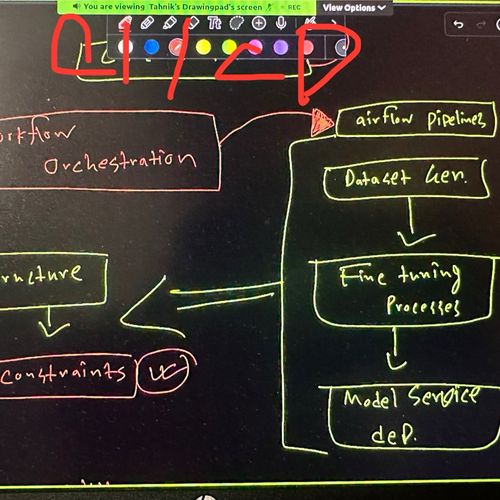 You are viewing Tahnik's Drawingpad's screen
REC
View Options
Tt
orkflow
Orchestration
airflow pipelines
Dataset Gen.
Fine tuning
Processes
Model Service
dep.
ructure
constraints